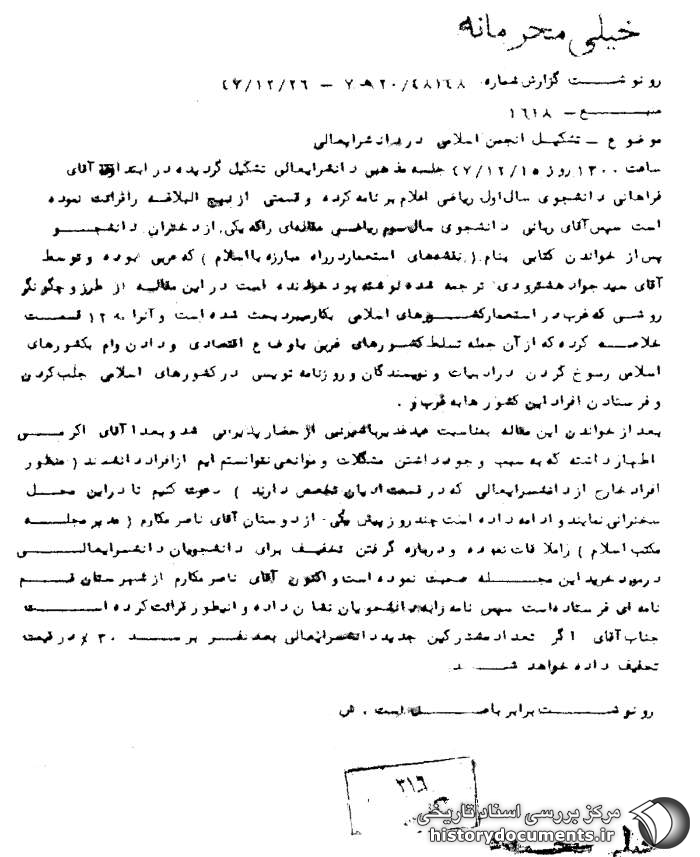 خیلی محرمانه
رونوشت گزارش شماره ۲۰/۴۸۱۴۸ هـ ۷ – ۴۷/۱۲/۲۶
منبع – ۱۶۱۸
موضوع – تشکیل انجمن اسلامی در دانشرایعالی
ساعت ۱۳۰۰ روز ۴۷/۱۲/۱۵ جلسه مذهبی دانشرایعالی تشکیل گردیده در ابتدا آقای
فراهانی دانشجوی سال اول ریاضی اعلام برنامه کرده و قسمتی از نهج البلاغه را قرائت نموده
است سپس آقای ربانی دانشجوی سال سوم ریاضی مقاله‌ای را که یکی از دختران دانشجو
پس از خواندن کتابی بنام ( نقشه‌های استعمار در راه مبارزه با اسلام ) که عربی بوده و توسط
آقای سید جواد هشترودی ترجمه شده نوشته بود خوانده است در این مقاله از طرز و چگونگی
روشی که غرب در استعمار کشورهای اسلامی بکار میبرد بحث شده است و آنرا به ۱۲ قسمت
خلاصه کرده که از آن جمله تسلط کشورهای غربی با وضاع اقتصادی و دادن وام بکشورهای
اسلامی رسوخ کردن در ادبیات و نویسندگان و روزنامه نویسی در کشورهای اسلامی جلب کردن
و فرستادن افراد این کشورها به غرب و .
بعد از خواندن این مقاله بمناسبت عید غدیر با شیرینی از حضار پذیرائی شد و بعدا آقای اکرمی
اظهار داشته که به سبب وجود داشتن مشکلات و موانعی نتوانسته ایم از افراد دانشمند ( منظور
افراد خارج از دانشسرایعالی که در قسمت ادیان تخصص دارند ) دعوت کنیم تا در این محل
سخنرانی نمایند و ادامه داده است چند روز پیش یکی از دوستان آقای ناصر مکارم ( مدیر مجله
مکتب اسلام ) را ملاقات نموده و درباره گرفتن تخفیف برای دانشجویان دانشسرایعالی
در مورد خرید این مجله صحبت نموده است و اکنون آقای ناصر مکارم از شهرستان قم
نامه ای فرستاده است سپس نامه را به دانشجویان نشان داده و اینطور قرائت کرده است
جناب آقای اگر تعداد مشترکین جدید دانشسرایعالی بصد نفر برسد ۳۰٪ در قیمت
تخفیف داده خواهد شد
رونوشت برابر با اصل است . ش
۳۱۶
مرکز بررسی اسناد تاریخی
historydocuments.ir